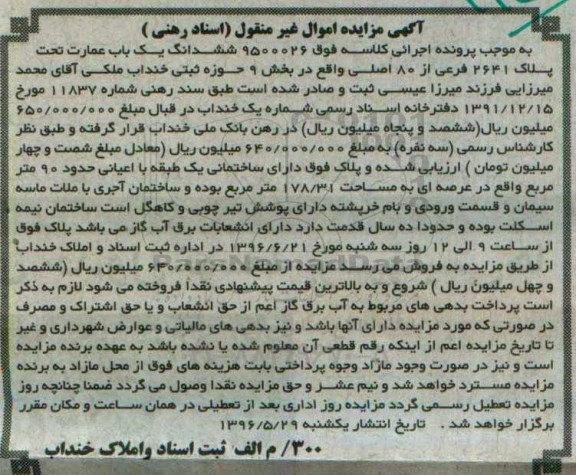 آگهی مزایده اموال غیر منقول (اسناد رهنی)
به موجب پرونده اجرائی کلاسه فوق ۹۵۰۰۰۲۶ ششدانگ یک باب عمارت تحت
پلاک ۲۶۴۱ فرعی از ۸۰ اصلی واقع در بخش ۹ حوزه ثبتی خنداب ملکی آقای محمد
میرزایی فرزند میرزا عیسی ثبت و صادر شده است طبق سند رهنی شماره ۱۱۸۳۷ مورخ
۱۳۹۱/۱۲/۱۵ دفترخانه اسناد رسمی شماره یک خنداب در قبال مبلغ ۶۵۰/۰۰۰/۰۰۰
میلیون ریال(ششصد و پنجاه میلیون ریال) در رهن بانک ملی خنداب قرار گرفته و طبق نظر
کارشناس رسمی (سه نفره) به مبلغ ۶۴۰/۰۰۰/۰۰۰ میلیون ریال (معادل مبلغ شصت و چهار
میلیون تومان ) ارزیابی شده و پلاک فوق دارای ساختمانی یک طبقه با اعیانی حدود ۹۰ متر
مربع واقع در عرصه ای به مساحت ۱۷۸/۳۱ متر مربع بوده و ساختمان آجری با ملات ماسه
سیمان و قسمت ورودی و بام خرپشته دارای پوشش تیر چوبی و کاهگل است ساختمان نیمه
اسکلت بوده و حدودا ده سال قدمت دارد دارای انشعابات برق آب گاز می باشد پلاک فوق
از ساعت ۹ الی ۱۲ روز سه شنبه مورخ ۱۳۹۶/۶/۲۱ در اداره ثبت اسناد و املاک خنداب
از طریق مزایده به فروش می رسد مزایده از مبلغ ۶۴۰/۰۰۰/۰۰۰ میلیون ریال (ششصد
و چهل میلیون ریال ) شروع و به بالاترین قیمت پیشنهادی نقدا فروخته می شود لازم به ذکر
است پرداخت بدهی های مربوط به آب برق گاز اعم از حق انشعاب و یا حق اشتراک و مصرف
در صورتی که مورد مزایده دارای آنها باشد و نیز بدهی های مالیاتی و عوارض شهرداری و غیر
تا تاریخ مزایده اعم از اینکه رقم قطعی آن معلوم شده یا نشده باشد به عهده برنده مزایده
است و نیز در صورت وجود مازاد وجوه پرداختی بابت هزینه های فوق از محل مازاد به برنده
مزایده مسترد خواهد شد و نیم عشر و حق مزایده نقدا وصول می گردد ضمنا چنانچه روز
مزایده تعطیل رسمی گردد مزایده روز اداری بعد از تعطیلی در همان ساعت و مکان مقرر
برگزار خواهد شد . تاریخ انتشار یکشنبه ۱۳۹۶/۵/۲۹
۳۰۰/ م الف ثبت اسناد واملاک خنداب